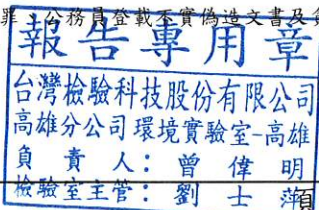 罪、公務員登載不實偽造文書及貪
報告專用章
台灣檢驗科技股份有限公司
高雄分公司環境實驗室-高雄
負責人：曾偉明
檢驗室主管：劉士萍
頁